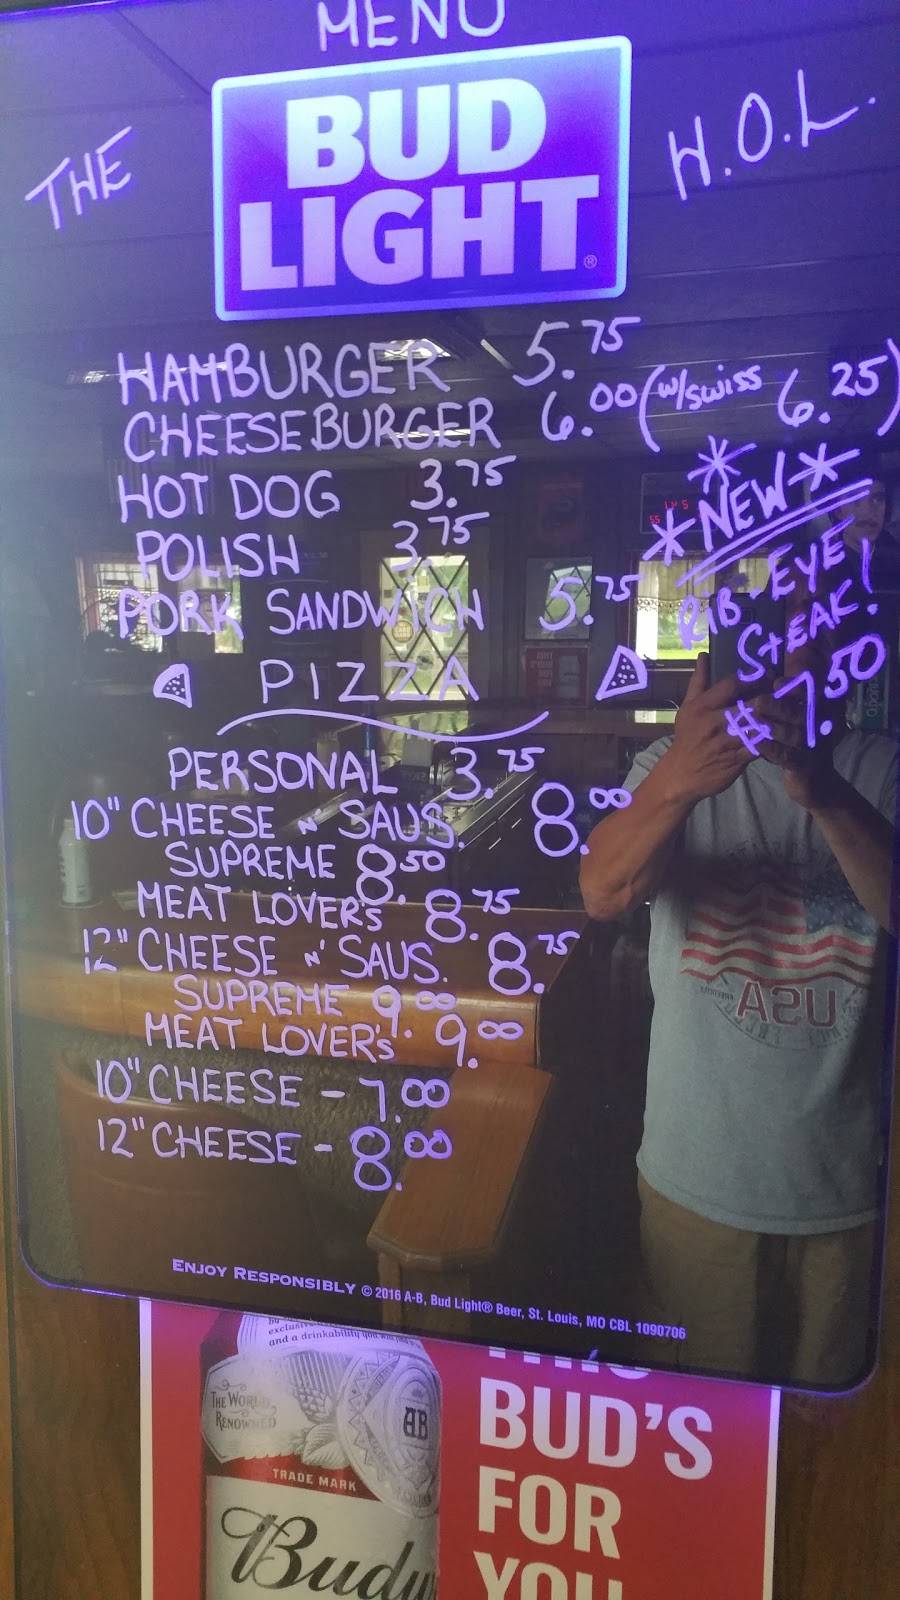 MENU
THE
BUD
LIGHT®
H.O.L.
HAMBURGER 5.75
CHEESEBURGER 6.00 (w/swiss 6.25)
HOT DOG 3.75
POLISH 3.75
PORK SANDWICH 5.75
*NEW*
RIB-EYE
STEAK!
$7.50
PIZZA
PERSONAL 3.75
10" CHEESE N' SAUS. 8.00
SUPREME 8.50
MEAT LOVER'S 8.75
12" CHEESE N' SAUS. 8.75
SUPREME 9.00
MEAT LOVER'S 9.00
10" CHEESE - 7.00
12" CHEESE - 8.00
USA
ENJOY RESPONSIBLY © 2016 A-B, Bud Light® Beer, St. Louis, MO CBL 1090706
and a drinkability you will
THE WORLD
RENOWNED
AB
TRADE MARK
Budw
THIS
BUD'S
FOR
YOU